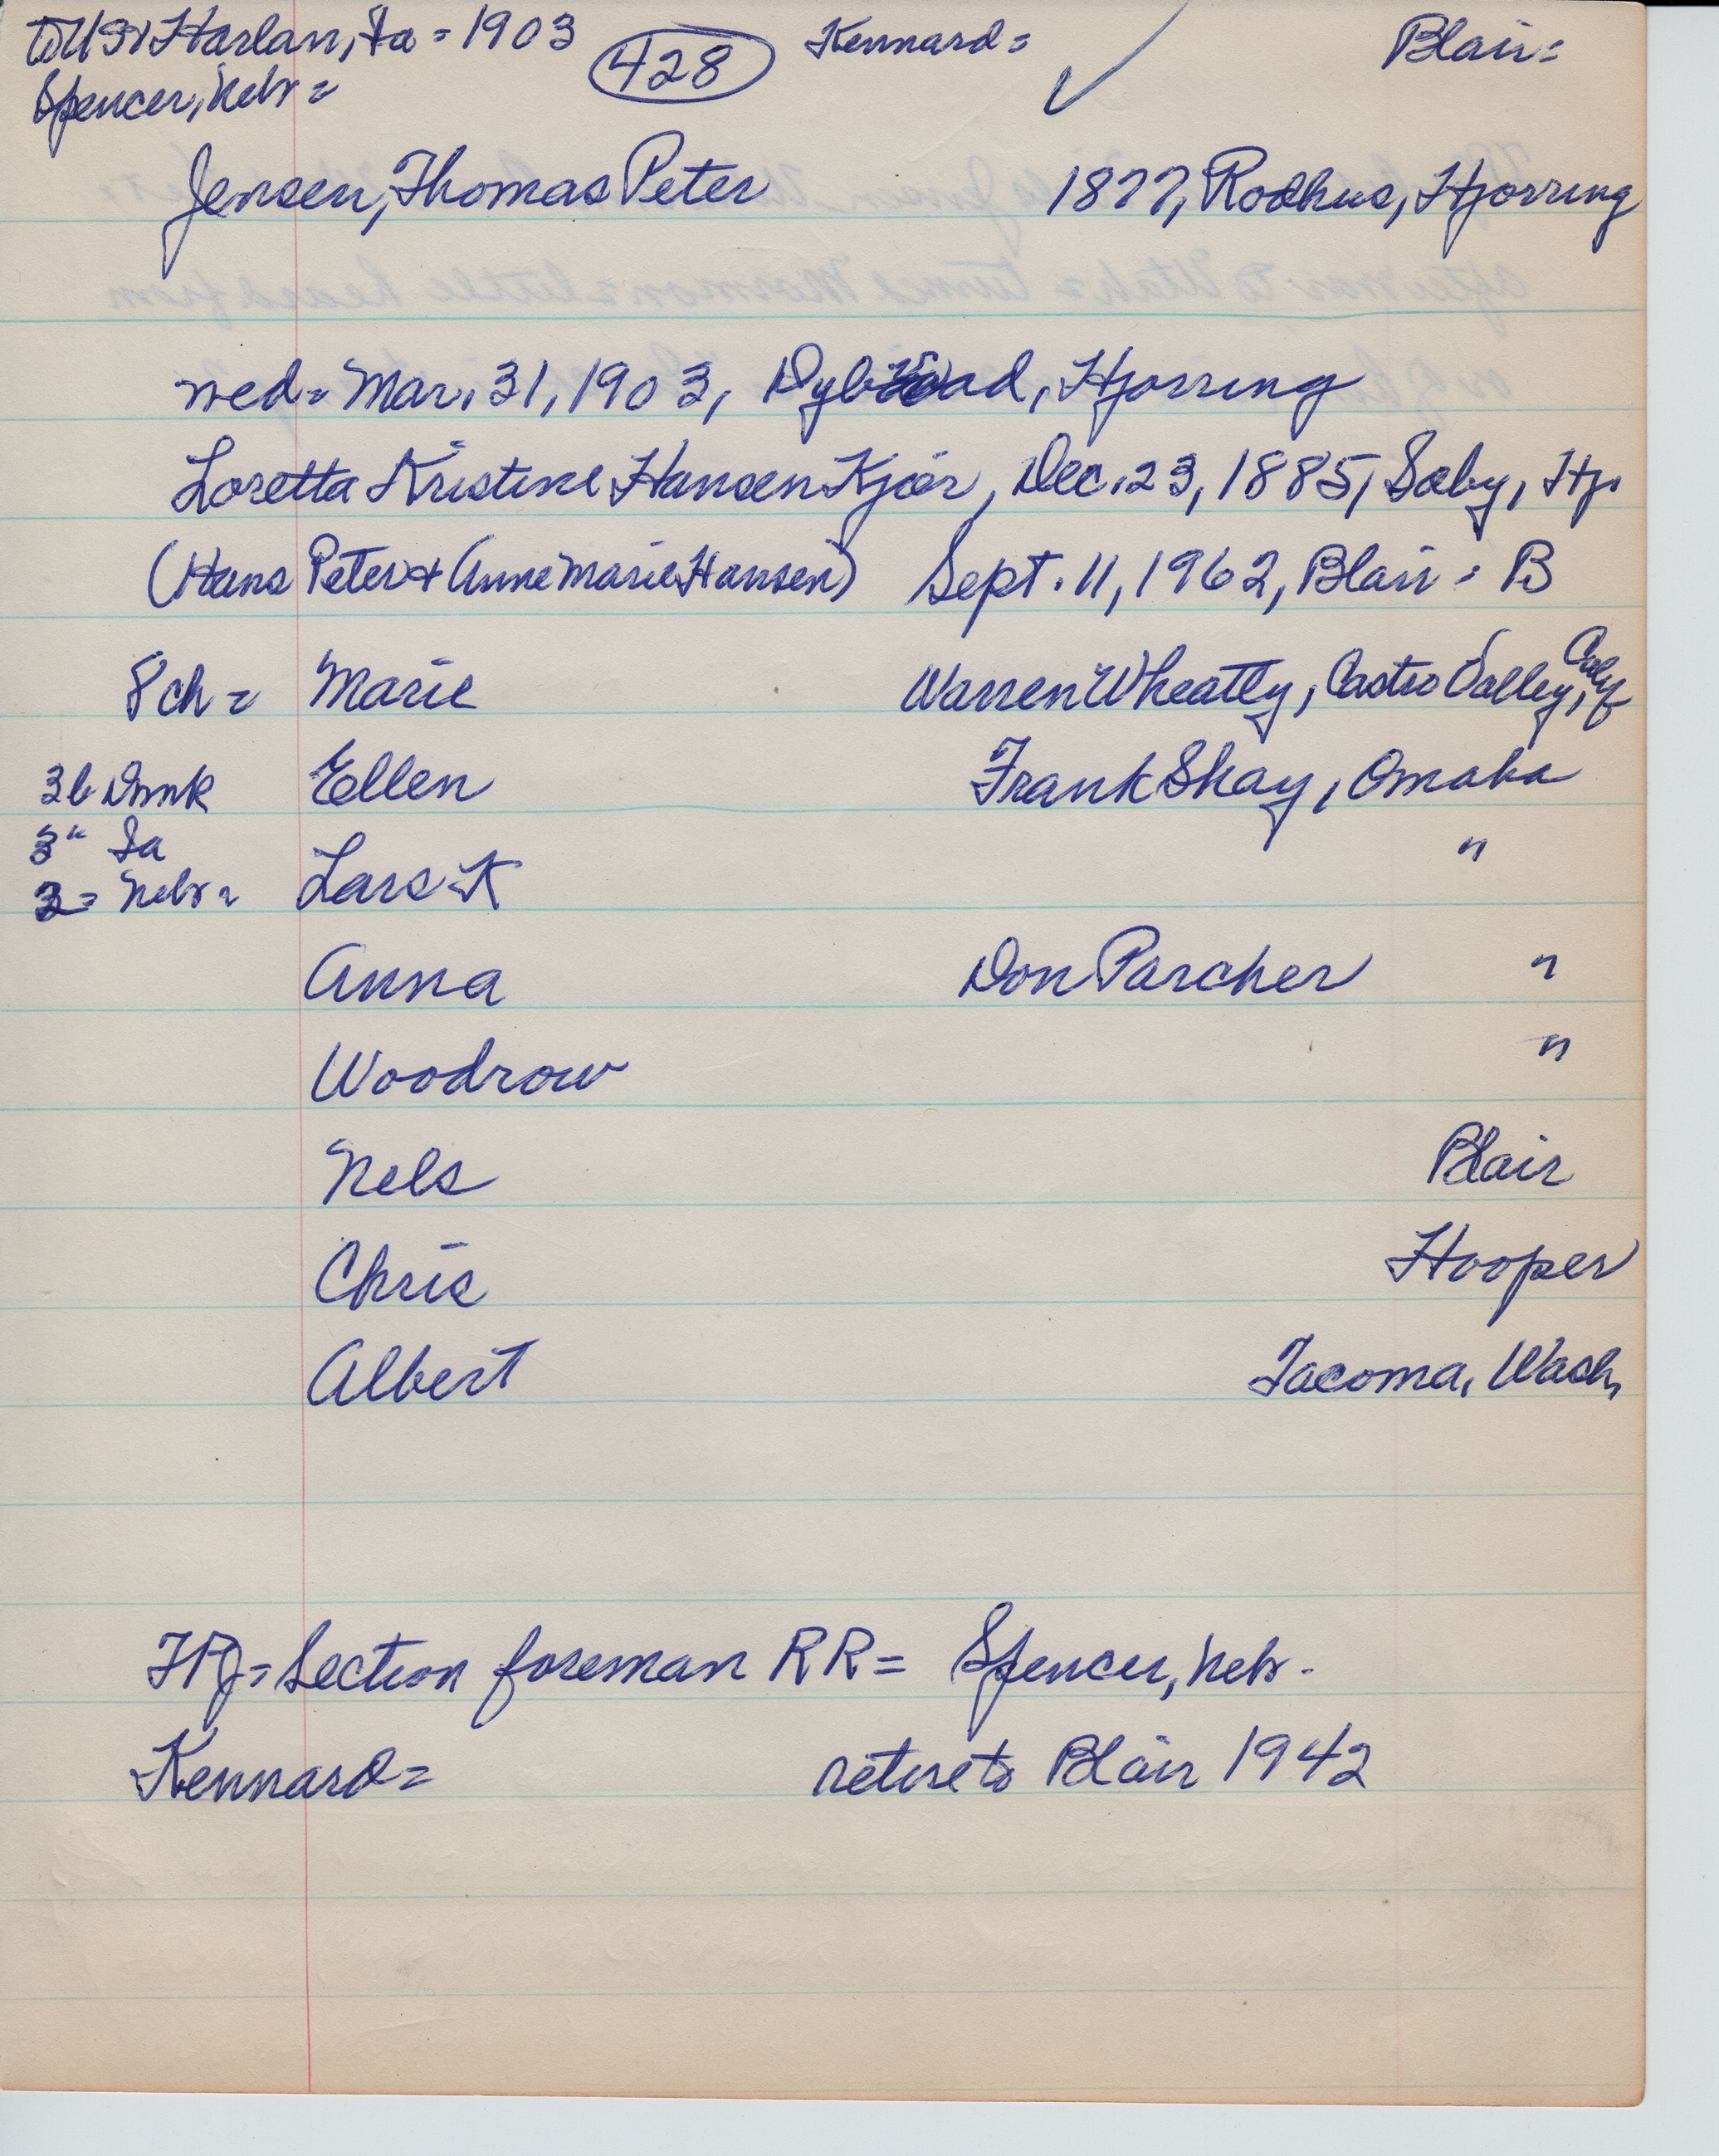 to US = Harlan, Ia = 1903 428 Kennard = ✓ Blair =
Spencer, Nebr =
Jensen, Thomas Peter 1877, Rodhus, Hjorring
wed = Mar. 31, 1903, Hjorring
Loretta Kristine Hansen Kjær, Dec. 23, 1885, Saby, Hj.
(Hans Peter + Anne Marie Hansen) Sept. 11, 1962, Blair = B
8 ch = Marie Warren Wheatly, Castro Valley, Calif
3 b Dnmk Ellen Frank Shay, Omaha
3 " Ia "
2 = Nebr = Lars K
Anna Don Parcher "
Woodrow "
Nels Blair
Chris Hooper
Albert Tacoma, Wash,
TPJ = Section foreman RR = Spencer, Nebr.
Kennard = retire to Blair 1942